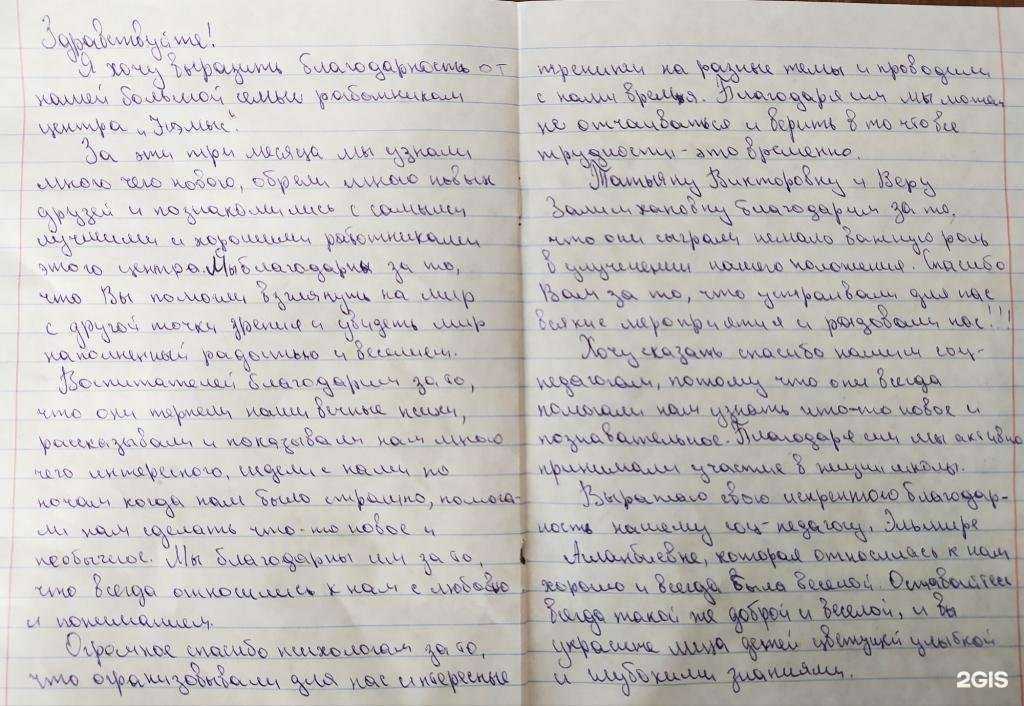 Здравствуйте!
Я хочу выразить благодарность от
нашей большой семьи работникам
центра „Үчэмыс".
За эти три месяца мы узнали
много чего нового, обрели много новых
друзей и познакомились с самыми
лучшими и хорошими работниками
этого центра. Мы благодарны за то,
что Вы помогли взглянуть на мир
с другой точки зрения и увидеть мир
наполненный радостью и веселием.
Воспитателей благодарим за то,
что они терпели наши вечные психи,
рассказывали и показывали нам много
чего интересного, сидели с нами по
ночам когда нам было страшно, помога-
ли нам сделать что-то новое и
необычное. Мы благодарны им за то,
что всегда относились к нам с любовью
и пониманием.
Огромное спасибо психологам за то,
что огранизовывали для нас интересные
тренинги на разные темы и проводили
с нами время. Благодаря им мы можем
не отчаиваться и верить в то что все
трудности - это временно.
Татьяну Викторовну и Веру
Залимхановну благодарим за то,
что они сыграли немало важную роль
в улучшении нашего положения. Спасибо
Вам за то, что устраивали для нас
всякие мероприятия и радовали нас!!!
Хочу сказать спасибо нашим соц-
педагогам, потому что они всегда
помогали нам узнать что-то новое и
познавательное. Благодаря им мы активно
принимали участие в жизни школы.
Выражаю свою искреннюю благодар-
ность нашему соц-педагогу, Эльмире
Аманбаевне, которая относилась к нам
хорошо и всегда была веселой. Оставайтесь
всегда такой же доброй и веселой, и вы
украсите лица детей цветущей улыбкой
и глубокими знаниями.
2GIS